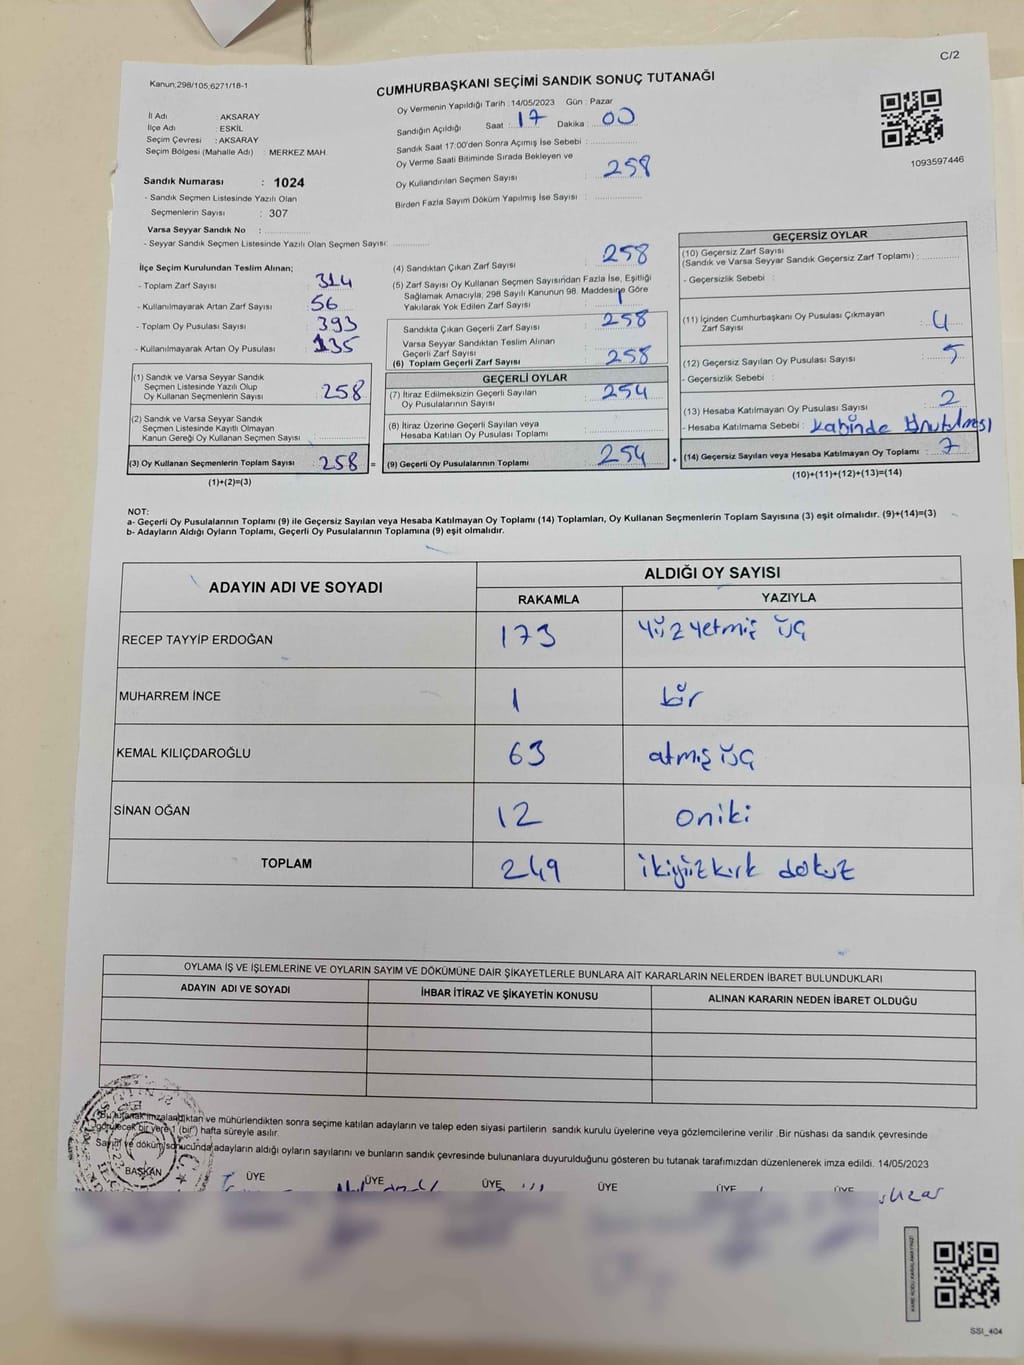 C/2
Kanun;298/105;6271/18-1
CUMHURBAŞKANI SEÇİMİ SANDIK SONUÇ TUTANAĞI
Oy Vermenin Yapıldığı Tarih : 14/05/2023 Gün : Pazar
İl Adı : AKSARAY
İlçe Adı : ESKİL
Seçim Çevresi : AKSARAY
Seçim Bölgesi (Mahalle Adı) : MERKEZ MAH.
Sandığın Açıldığı Saat : 17 Dakika : 00
Sandık Saat 17:00'den Sonra Açımış İse Sebebi :
Oy Verme Saati Bitiminde Sırada Bekleyen ve
Oy Kullandırılan Seçmen Sayısı : 258
Birden Fazla Sayım Döküm Yapılmış İse Sayısı :
1093597446
Sandık Numarası : 1024
- Sandık Seçmen Listesinde Yazılı Olan
Seçmenlerin Sayısı : 307
Varsa Seyyar Sandık No :
- Seyyar Sandık Seçmen Listesinde Yazılı Olan Seçmen Sayısı:
İlçe Seçim Kurulundan Teslim Alınan;
- Toplam Zarf Sayısı : 314
- Kullanılmayarak Artan Zarf Sayısı : 56
- Toplam Oy Pusulası Sayısı : 393
- Kullanılmayarak Artan Oy Pusulası : 135
(1) Sandık ve Varsa Seyyar Sandık
Seçmen Listesinde Yazılı Olup
Oy Kullanan Seçmenlerin Sayısı : 258
(2) Sandık ve Varsa Seyyar Sandık
Seçmen Listesinde Kayıtlı Olmayan
Kanun Gereği Oy Kullanan Seçmen Sayısı :
(3) Oy Kullanan Seçmenlerin Toplam Sayısı : 258 =
(1)+(2)=(3)
(4) Sandıktan Çıkan Zarf Sayısı : 258
(5) Zarf Sayısı Oy Kullanan Seçmen Sayısından Fazla İse, Eşitliği
Sağlamak Amacıyla; 298 Sayılı Kanunun 98. Maddesine Göre
Yakılarak Yok Edilen Zarf Sayısı :
Sandıkta Çıkan Geçerli Zarf Sayısı : 258
Varsa Seyyar Sandıktan Teslim Alınan
Geçerli Zarf Sayısı :
(6) Toplam Geçerli Zarf Sayısı : 258
GEÇERLİ OYLAR
(7) İtiraz Edilmeksizin Geçerli Sayılan
Oy Pusulalarının Sayısı : 254
(8) İtiraz Üzerine Geçerli Sayılan veya
Hesaba Katılan Oy Pusulası Toplamı :
(9) Geçerli Oy Pusulalarının Toplamı : 254 +
GEÇERSİZ OYLAR
(10) Geçersiz Zarf Sayısı
(Sandık ve Varsa Seyyar Sandık Geçersiz Zarf Toplamı) :
- Geçersizlik Sebebi :
(11) İçinden Cumhurbaşkanı Oy Pusulası Çıkmayan
Zarf Sayısı : 4
(12) Geçersiz Sayılan Oy Pusulası Sayısı : 5
- Geçersizlik Sebebi :
(13) Hesaba Katılmayan Oy Pusulası Sayısı : 2
- Hesaba Katılmama Sebebi : Kabinde Unutulması
(14) Geçersiz Sayılan veya Hesaba Katılmayan Oy Toplamı : 7
(10)+(11)+(12)+(13)=(14)
NOT:
a- Geçerli Oy Pusulalarının Toplamı (9) ile Geçersiz Sayılan veya Hesaba Katılmayan Oy Toplamı (14) Toplamları, Oy Kullanan Seçmenlerin Toplam Sayısına (3) eşit olmalıdır. (9)+(14)=(3)
b- Adayların Aldığı Oyların Toplamı, Geçerli Oy Pusulalarının Toplamına (9) eşit olmalıdır.
ADAYIN ADI VE SOYADI
ALDIĞI OY SAYISI
RAKAMLA YAZIYLA
RECEP TAYYİP ERDOĞAN 173 yüzyetmiş üç
MUHARREM İNCE 1 bir
KEMAL KILIÇDAROĞLU 63 atmış üç
SİNAN OĞAN 12 oniki
TOPLAM 249 ikiyüzkırk dokuz
OYLAMA İŞ VE İŞLEMLERİNE VE OYLARIN SAYIM VE DÖKÜMÜNE DAİR ŞİKAYETLERLE BUNLARA AİT KARARLARIN NELERDEN İBARET BULUNDUKLARI
ADAYIN ADI VE SOYADI İHBAR İTİRAZ VE ŞİKAYETİN KONUSU ALINAN KARARIN NEDEN İBARET OLDUĞU
Bu tutanak imzalandıktan ve mühürlendikten sonra seçime katılan adayların ve talep eden siyasi partilerin sandık kurulu üyelerine veya gözlemcilerine verilir .Bir nüshası da sandık çevresinde
görülecek bir yere 1 (bir) hafta süreyle asılır.
Sayım ve döküm sonucunda adayların aldığı oyların sayılarını ve bunların sandık çevresinde bulunanlara duyurulduğunu gösteren bu tutanak tarafımızdan düzenlenerek imza edildi. 14/05/2023
BAŞKAN ÜYE ÜYE ÜYE ÜYE ÜYE ÜYE
SSI_404